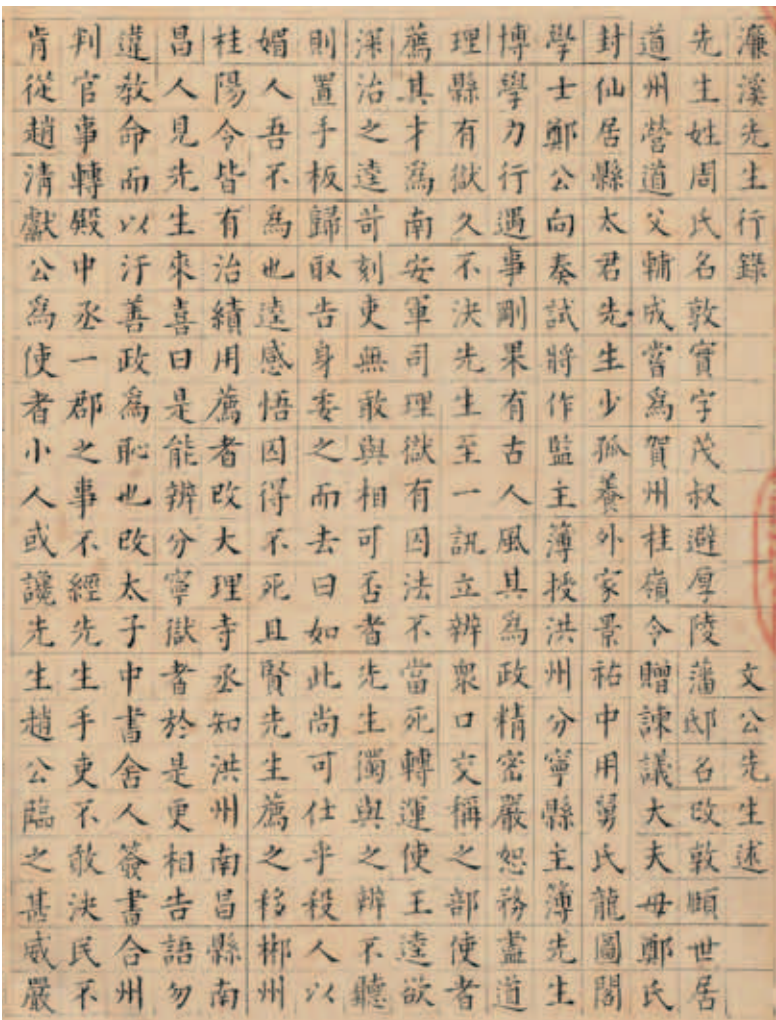 濂溪先生行錄 文公先生述
先生姓周氏名敦實字茂叔避厚陵藩邸名改敦頤世居
道州營道父輔成嘗爲賀州桂嶺令贈諫議大夫母鄭氏
封仙居縣太君先生少孤養外家景祐中用舅氏龍圖閣
學士鄭公向奏試將作監主簿授洪州分寧縣主簿先生
博學力行遇事剛果有古人風其爲政精密嚴恕務盡道
理縣有獄久不決先生至一訊立辨衆口交稱之部使者
薦其才爲南安軍司理獄有囚法不當死轉運使王逵欲
深治之逵苛刻吏無敢與相可否者先生獨與之辨不聽
則置手板歸取告身委之而去曰如此尚可仕乎殺人以
媚人吾不爲也逵感悟囚得不死且賢先生薦之移郴州
桂陽令皆有治績用薦者改大理寺丞知洪州南昌縣南
昌人見先生來喜曰是能辨分寧獄者於是更相告語勿
違教命而以汙善政爲恥也改太子中書舍人簽書合州
判官事轉殿中丞一郡之事不經先生手吏不敢決民不
肯從趙清獻公爲使者小人或讒先生趙公臨之甚威嚴